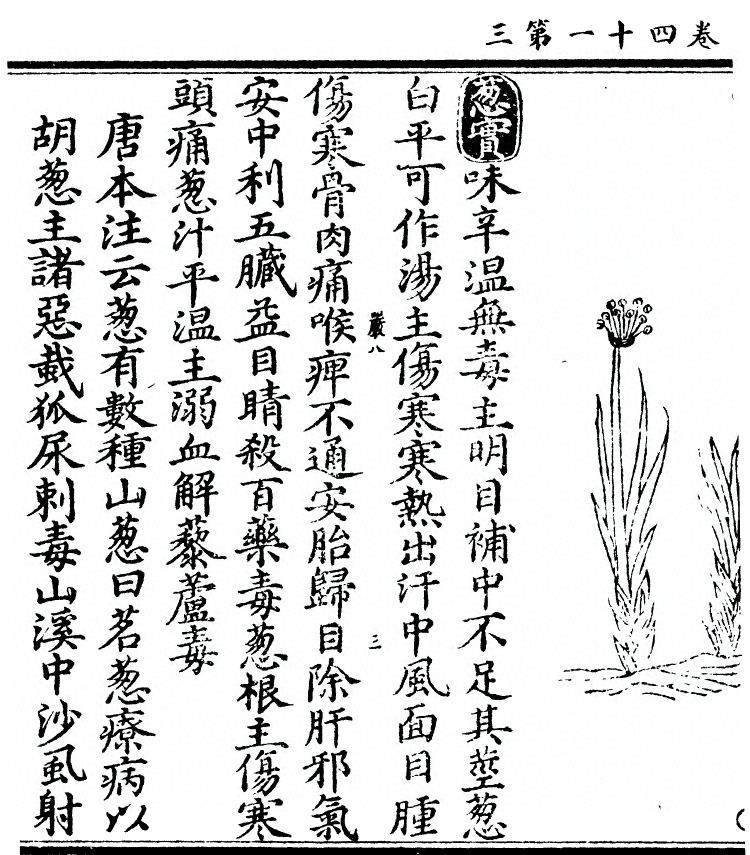 卷四十一第三
葱實味辛溫無毒主明目補中不足其莖葱
白平可作湯主傷寒寒熱出汗中風面目腫
嚴八
三
傷寒骨肉痛喉痺不通安胎歸目除肝邪氣
安中利五臟益目睛殺百藥毒葱根主傷寒
頭痛葱汁平溫主溺血解藜蘆毒
唐本注云葱有數種山葱曰茖葱療病以
胡葱主諸惡蛓狐尿刺毒山溪中沙虱射